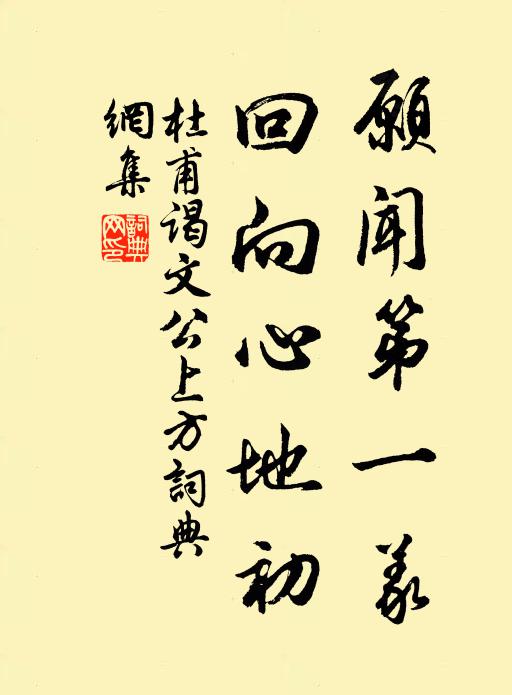 願聞第一義
回向心地初
杜甫謁文公上方詞典
網集
詞典網印